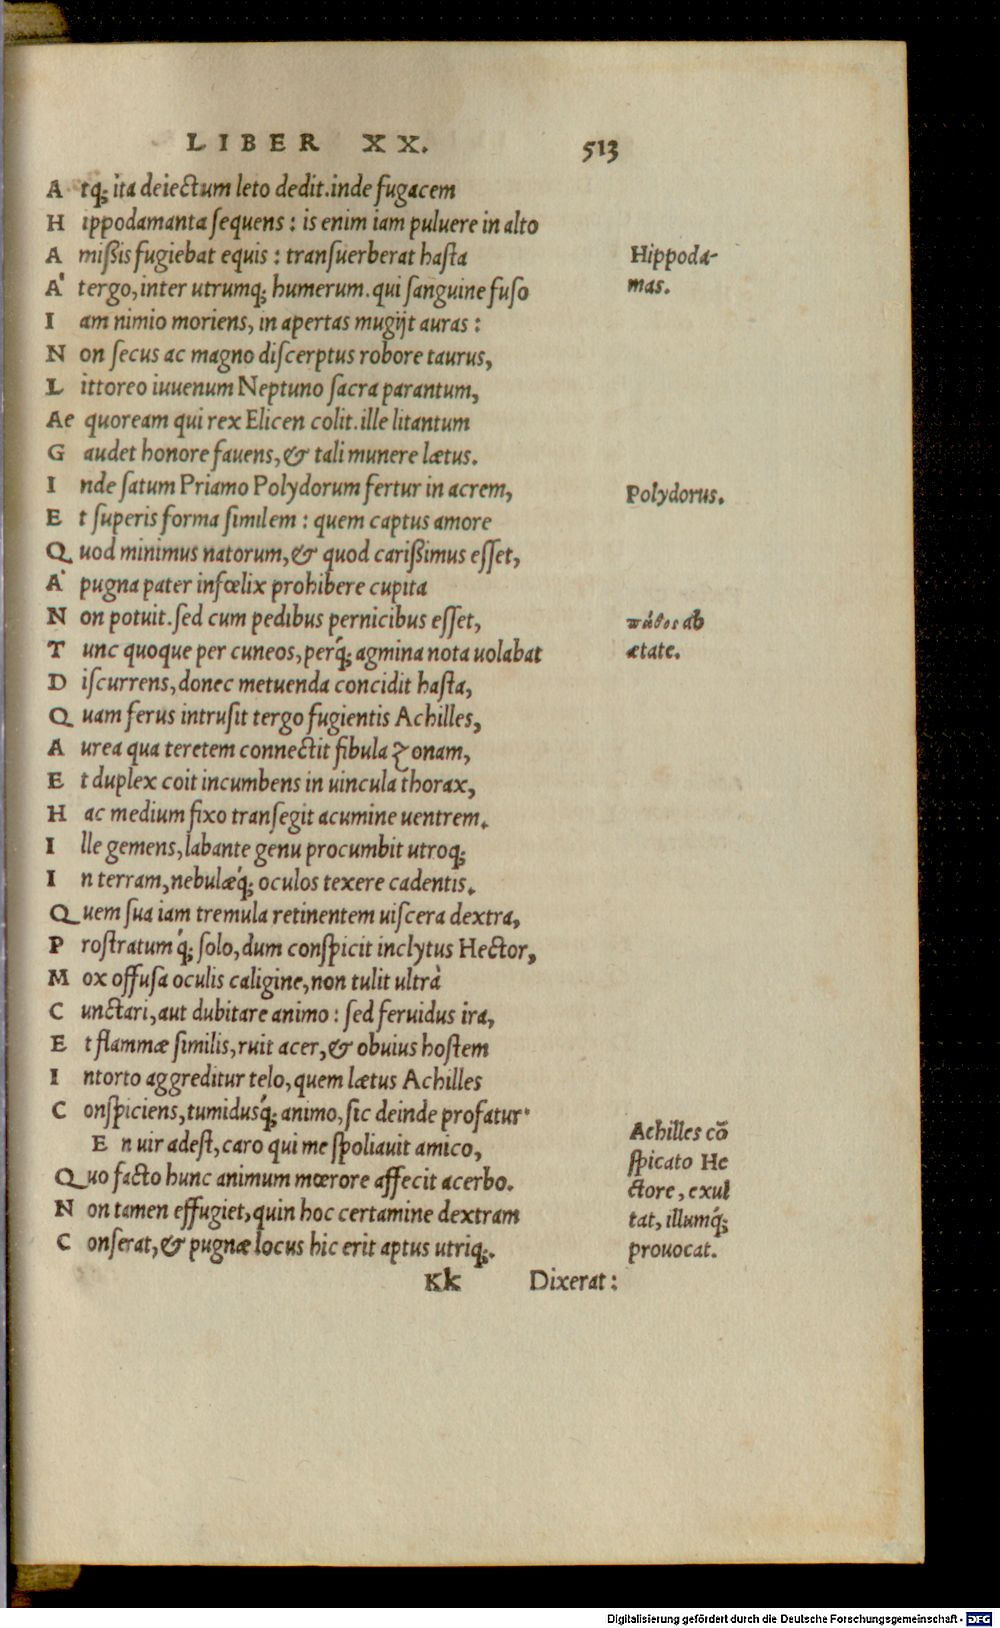 LIBER XX. 513
Atq; ita deiectum leto dedit. inde fugacem
Hippodamanta sequens: is enim iam puluere in alto
Amißis fugiebat equis: transuerberat hasta
Hippoda-
À tergo, inter utrumq; humerum. qui sanguine fuso
mas.
Iam nimio moriens, in apertas mugijt auras:
Non secus ac magno discerptus robore taurus,
Littoreo iuuenum Neptuno sacra parantum,
Aequoream qui rex Elicen colit. ille litantum
Gaudet honore fauens, & tali munere lætus.
Inde satum Priamo Polydorum fertur in acrem,
Polydorus.
Et superis forma similem: quem captus amore
Quod minimus natorum, & quod carißimus esset,
À pugna pater infœlix prohibere cupita
Non potuit. sed cum pedibus pernicibus esset,
πάθος ab
Tunc quoque per cuneos, perq́; agmina nota uolabat
ætate.
Discurrens, donec metuenda concidit hasta,
Quam ferus intrusit tergo fugientis Achilles,
Aurea qua teretem connectit fibula zonam,
Et duplex coit incumbens in uincula thorax,
Hac medium fixo transegit acumine uentrem.
Ille gemens, labante genu procumbit utroq;
In terram, nebulæq́; oculos texere cadentis.
Quem sua iam tremula retinentem uiscera dextra,
Prostratumq́; solo, dum conspicit inclytus Hector,
Mox offusa oculis caligine, non tulit ultrà
Cunctari, aut dubitare animo: sed feruidus ira,
Et flammæ similis, ruit acer, & obuius hostem
Intorto aggreditur telo, quem lætus Achilles
Conspiciens, tumidusq́; animo, sic deinde profatur.
Achilles cō
En uir adest, caro qui me spoliauit amico,
spicato He
Quo facto hunc animum mœrore affecit acerbo.
ctore, exul
Non tamen effugiet, quin hoc certamine dextram
tat, illumq́;
Conserat, & pugnæ locus hic erit aptus utriq;.
prouocat.
Kk Dixerat:
Digitalisierung gefördert durch die Deutsche Forschungsgemeinschaft - DFG